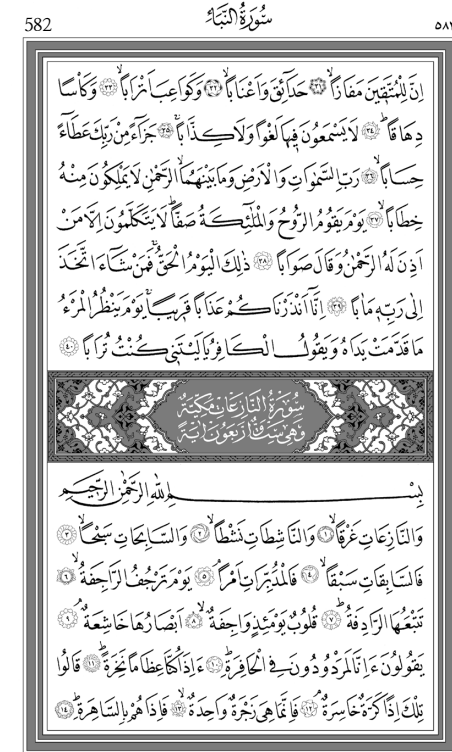 582 سُورَةُ النَّبَأِ ٥٨٢
اِنَّ لِلْمُتَّقِينَ مَفَازًاۙ ﴿٣١﴾ حَدَٓائِقَ وَاَعْنَابًاۙ ﴿٣٢﴾ وَكَوَاعِبَ اَتْرَابًاۙ ﴿٣٣﴾ وَكَأْسًا
دِهَاقًاۜ ﴿٣٤﴾ لَا يَسْمَعُونَ فِيهَا لَغْوًا وَلَا كِذَّابًاۚ ﴿٣٥﴾ جَزَٓاءً مِنْ رَبِّكَ عَطَٓاءً
حِسَابًاۙ ﴿٣٦﴾ رَبِّ السَّمٰوَاتِ وَالْاَرْضِ وَمَا بَيْنَهُمَا الرَّحْمٰنِ لَا يَمْلِكُونَ مِنْهُ
خِطَابًاۚ ﴿٣٧﴾ يَوْمَ يَقُومُ الرُّوحُ وَالْمَلٰٓئِكَةُ صَفًّاۜ لَا يَتَكَلَّمُونَ اِلَّا مَنْ
اَذِنَ لَهُ الرَّحْمٰنُ وَقَالَ صَوَابًا ﴿٣٨﴾ ذٰلِكَ الْيَوْمُ الْحَقُّۚ فَمَنْ شَٓاءَ اتَّخَذَ
اِلٰى رَبِّهِ مَاٰبًا ﴿٣٩﴾ اِنَّٓا اَنْذَرْنَاكُمْ عَذَابًا قَرِيبًاۚ يَوْمَ يَنْظُرُ الْمَرْءُ
مَا قَدَّمَتْ يَدَاهُ وَيَقُولُ الْكَافِرُ يَا لَيْتَنِي كُنْتُ تُرَابًا ﴿٤٠﴾
سُورَةُ النَّازِعَاتِ مَكِّيَّةٌ
وَهِيَ سِتٌّ وَاَرْبَعُونَ اٰيَةً
بِسْمِ اللّٰهِ الرَّحْمٰنِ الرَّحِيمِ
وَالنَّازِعَاتِ غَرْقًاۙ ﴿١﴾ وَالنَّاشِطَاتِ نَشْطًاۙ ﴿٢﴾ وَالسَّابِحَاتِ سَبْحًاۙ ﴿٣﴾
فَالسَّابِقَاتِ سَبْقًاۙ ﴿٤﴾ فَالْمُدَبِّرَاتِ اَمْرًاۢ ﴿٥﴾ يَوْمَ تَرْجُفُ الرَّاجِفَةُۙ ﴿٦﴾
تَتْبَعُهَا الرَّادِفَةُۜ ﴿٧﴾ قُلُوبٌ يَوْمَئِذٍ وَاجِفَةٌۙ ﴿٨﴾ اَبْصَارُهَا خَاشِعَةٌۢ ﴿٩﴾
يَقُولُونَ ءَاِنَّا لَمَرْدُودُونَ فِي الْحَافِرَةِۜ ﴿١٠﴾ ءَاِذَا كُنَّا عِظَامًا نَخِرَةًۜ ﴿١١﴾ قَالُوا
تِلْكَ اِذًا كَرَّةٌ خَاسِرَةٌۢ ﴿١٢﴾ فَاِنَّمَا هِيَ زَجْرَةٌ وَاحِدَةٌۙ ﴿١٣﴾ فَاِذَا هُمْ بِالسَّاهِرَةِۜ ﴿١٤﴾